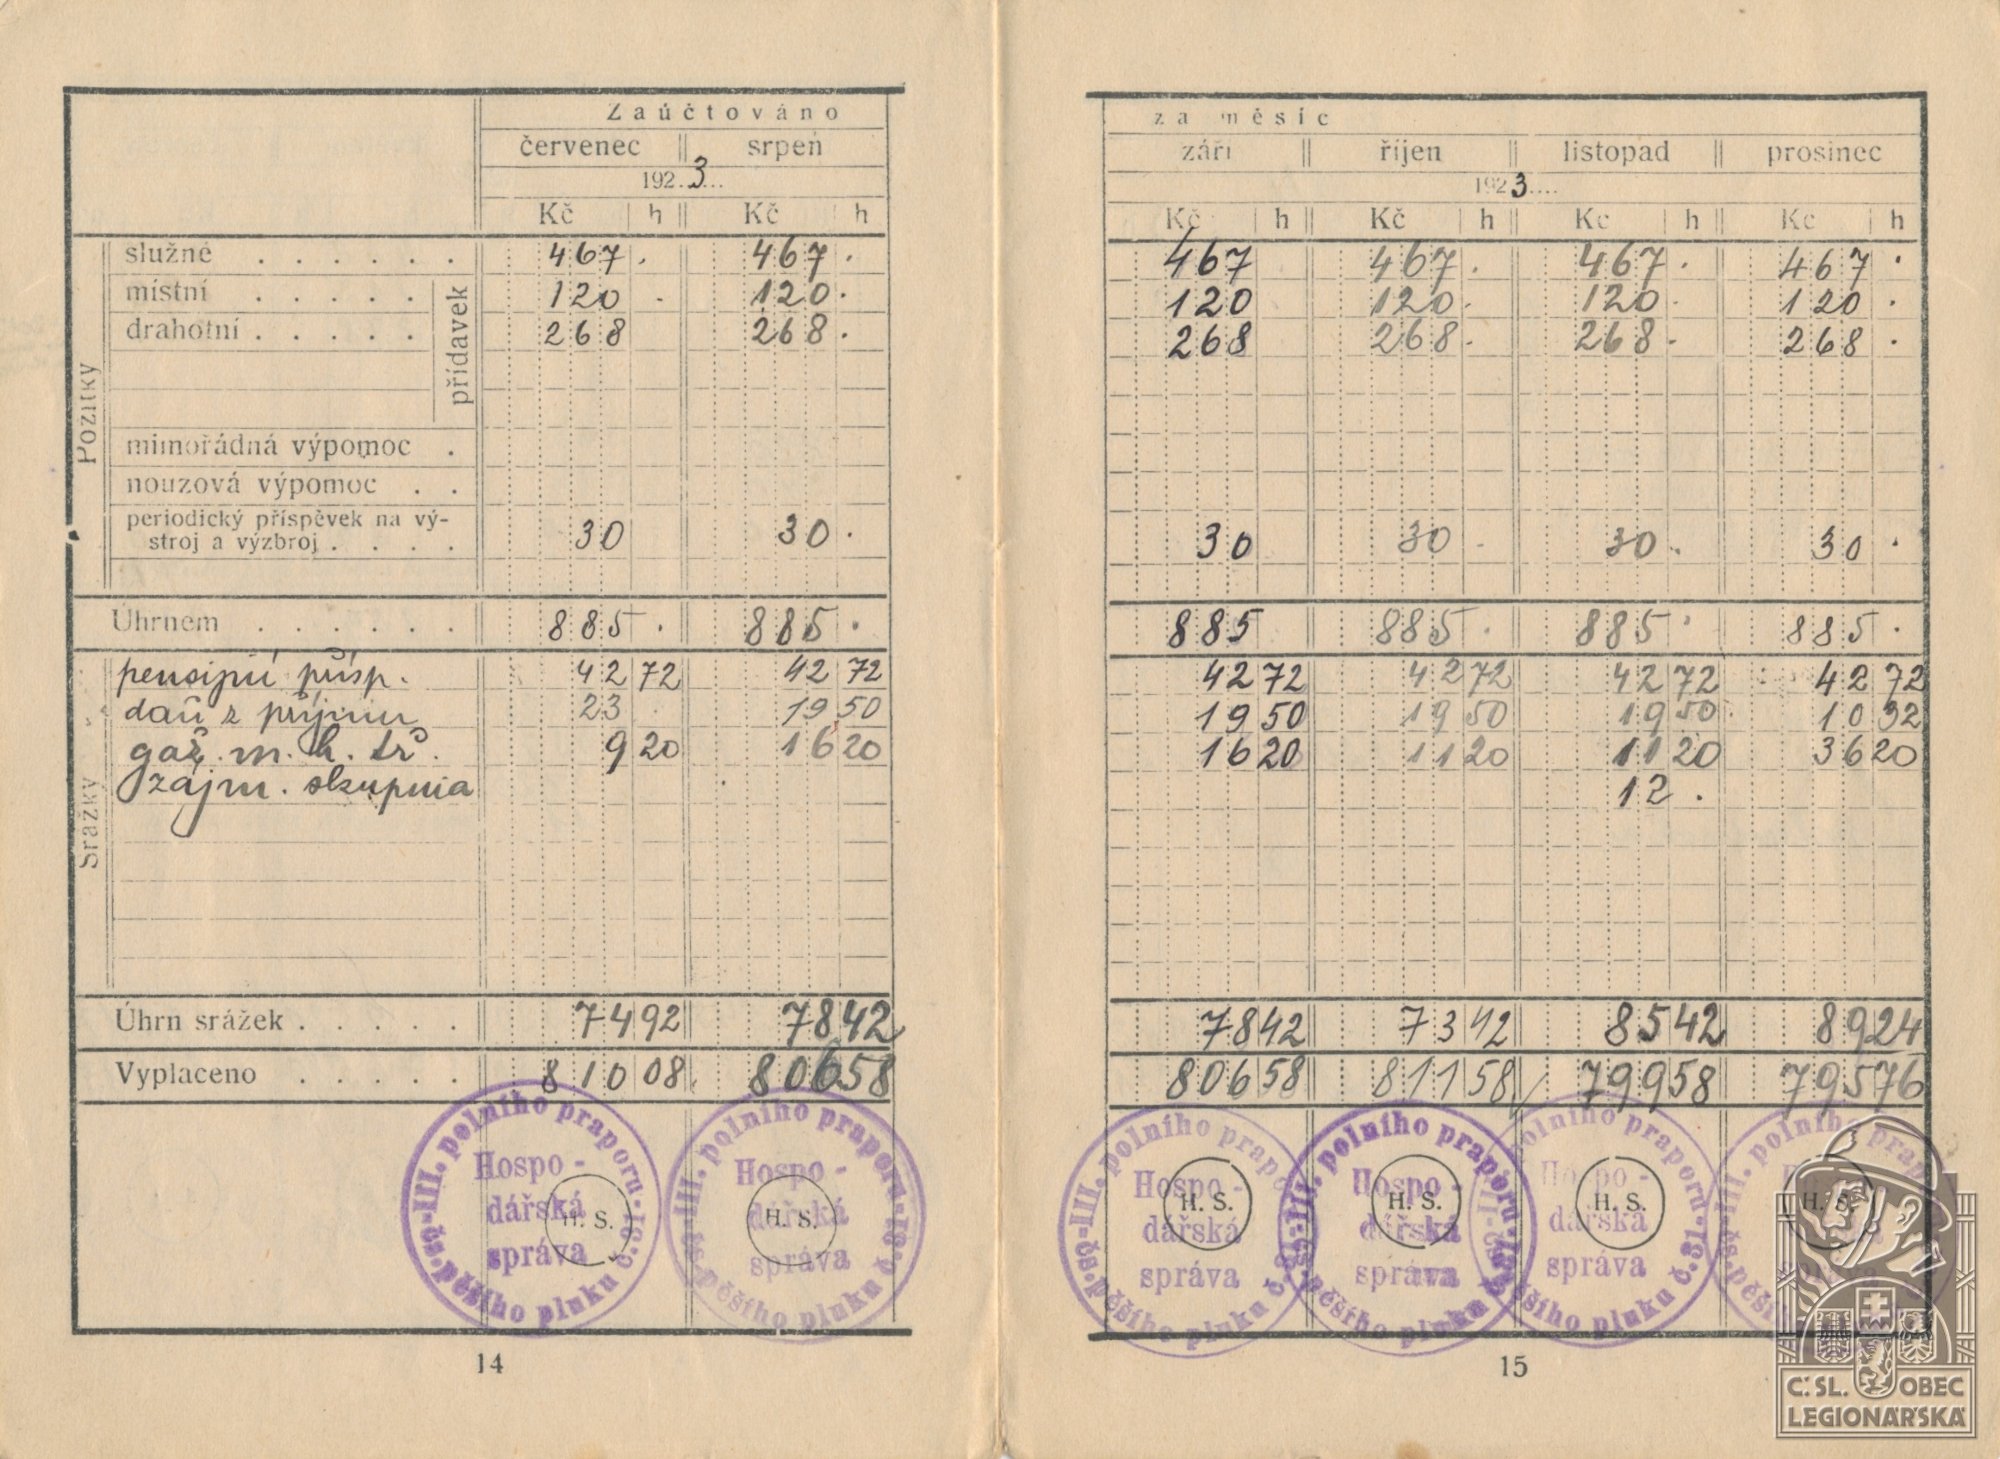 Zaúčtováno
červenec srpen
192.3...
Kč h Kč h
Požitky
služné . . . . . . 467 . 467 .
místní . . . . . 120 . 120 .
drahotní . . . . . 268 268 .
přídavek
mimořádná výpomoc .
nouzová výpomoc . .
periodický příspěvek na vý-
stroj a výzbroj . . . . 30 30 .
Úhrnem . . . . . . 885 . 885 .
Srážky
pensijní přísp. 42 72 42 72
daň z příjmu 23 . 19 50
gaž. m. h. tř. 9 20 16 20
zájm. skupina
Úhrn srážek . . . . . 74 92 78 42
Vyplaceno . . . . . 810 08 806 58
čs. pěšího pluku č. III. polního praporu
Hospo-
dářská
správa
H. S.
III. polního praporu
čs. pěšího pluku č.
Hospo-
dářská
správa
H. S.
14
za měsíc
září říjen listopad prosinec
1923....
Kč h Kč h Kč h Kč h
467 467 . 467 . 467 .
120 120 . 120 . 120 .
268 268 . 268 . 268 .
30 30 . 30 . 30 .
885 885 . 885 . 885 .
42 72 42 72 42 72 42 72
19 50 19 50 19 50 10 32
16 20 11 20 11 20 36 20
12 .
78 42 73 42 85 42 89 24
806 58 811 58 799 58 795 76
III. polního praporu
čs. pěšího pluku č. 31
Hospo-
dářská
správa
H. S.
III. polního praporu
pěšího pluku
Hospo-
dářská
správa
H. S.
polního praporu
pěšího pluku č. 31.
Hospo-
dářská
správa
H. S.
III. polního
čs. pěšího
H. S.
15
Č. SL. OBEC
LEGIONÁŘSKÁ